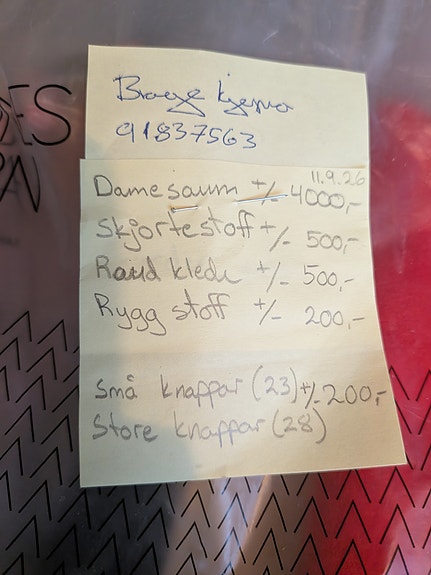 ES
91837563
11.9.26
Damesaum +/- 4000,-
Skjortestoff +/- 500,-
Raud klede +/- 500,-
Rygg stoff +/- 200,-
Små knappar (23) +/- 200,-
Store knappar (28)